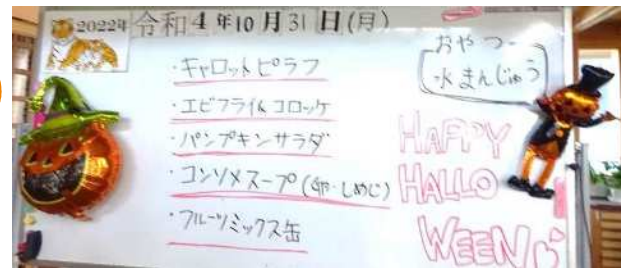 2022年 令和4年10月31日(月)
・キャロットピラフ
・エビフライ&コロッケ
・パンプキンサラダ
・コンソメスープ(卵・しめじ)
・フルーツミックス缶
おやつ
水まんじゅう
HAPPY
HALLO
WEEN